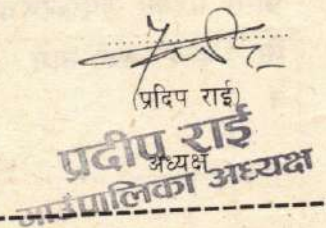 (प्रदिप राई)
अध्यक्ष
प्रदीप राई
गाउँपालिका अध्यक्ष